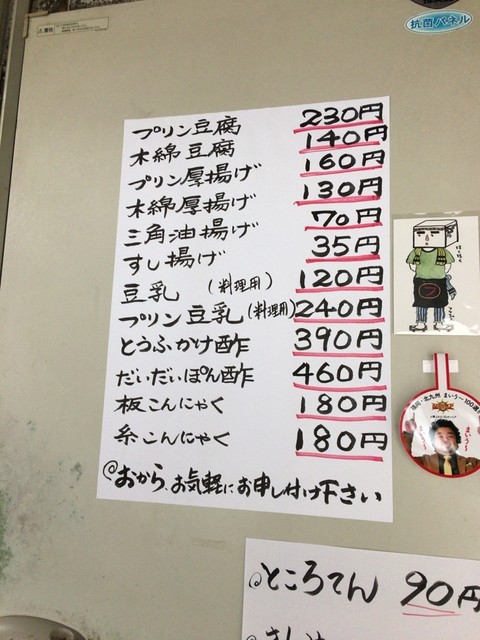 プリン豆腐 230円
木綿豆腐 140円
プリン厚揚げ 160円
木綿厚揚げ 130円
三角油揚げ 70円
すし揚げ 35円
豆乳 (料理用) 120円
プリン豆乳(料理用) 240円
とうふかけ酢 390円
だいだいぽん酢 460円
板こんにゃく 180円
糸こんにゃく 180円
@おから、お気軽にお申し付け下さい
ところてん 90円
抗菌パネル